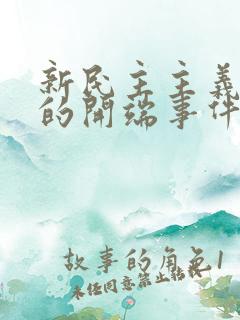 新民主主義
的開端事件
故事的角色1
未经同意禁止转载